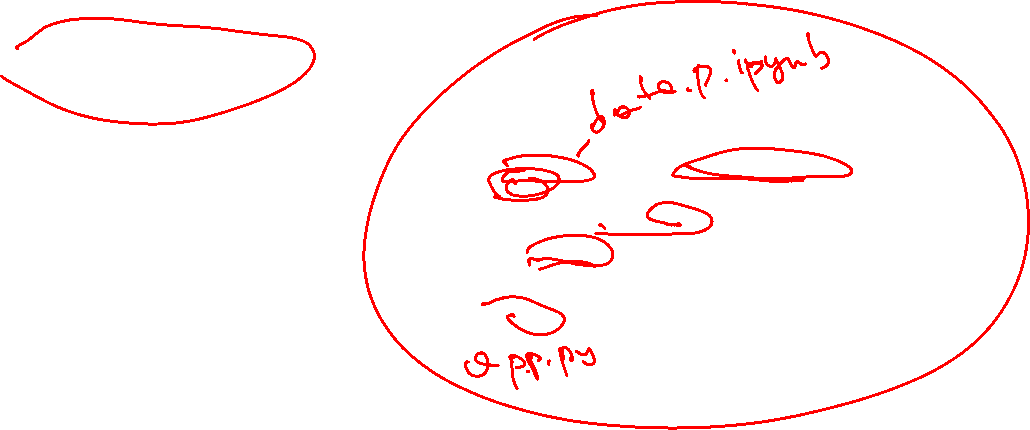 data.p.ipynb
app.py